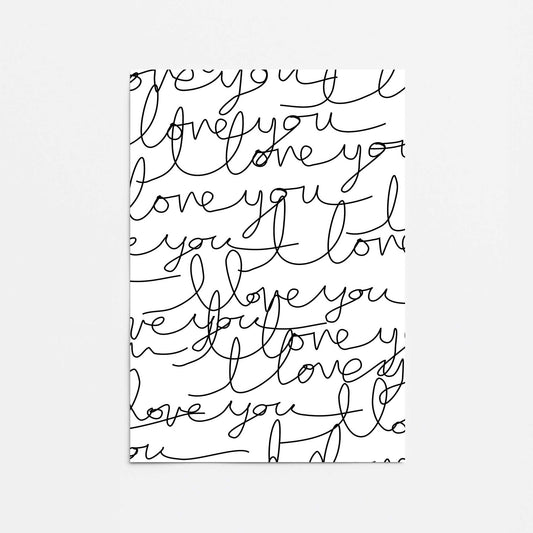 ove you I l
love you
I love you
love you
e you I love
I love you
ve you I love y
u I love y
love you I lo
you I love you